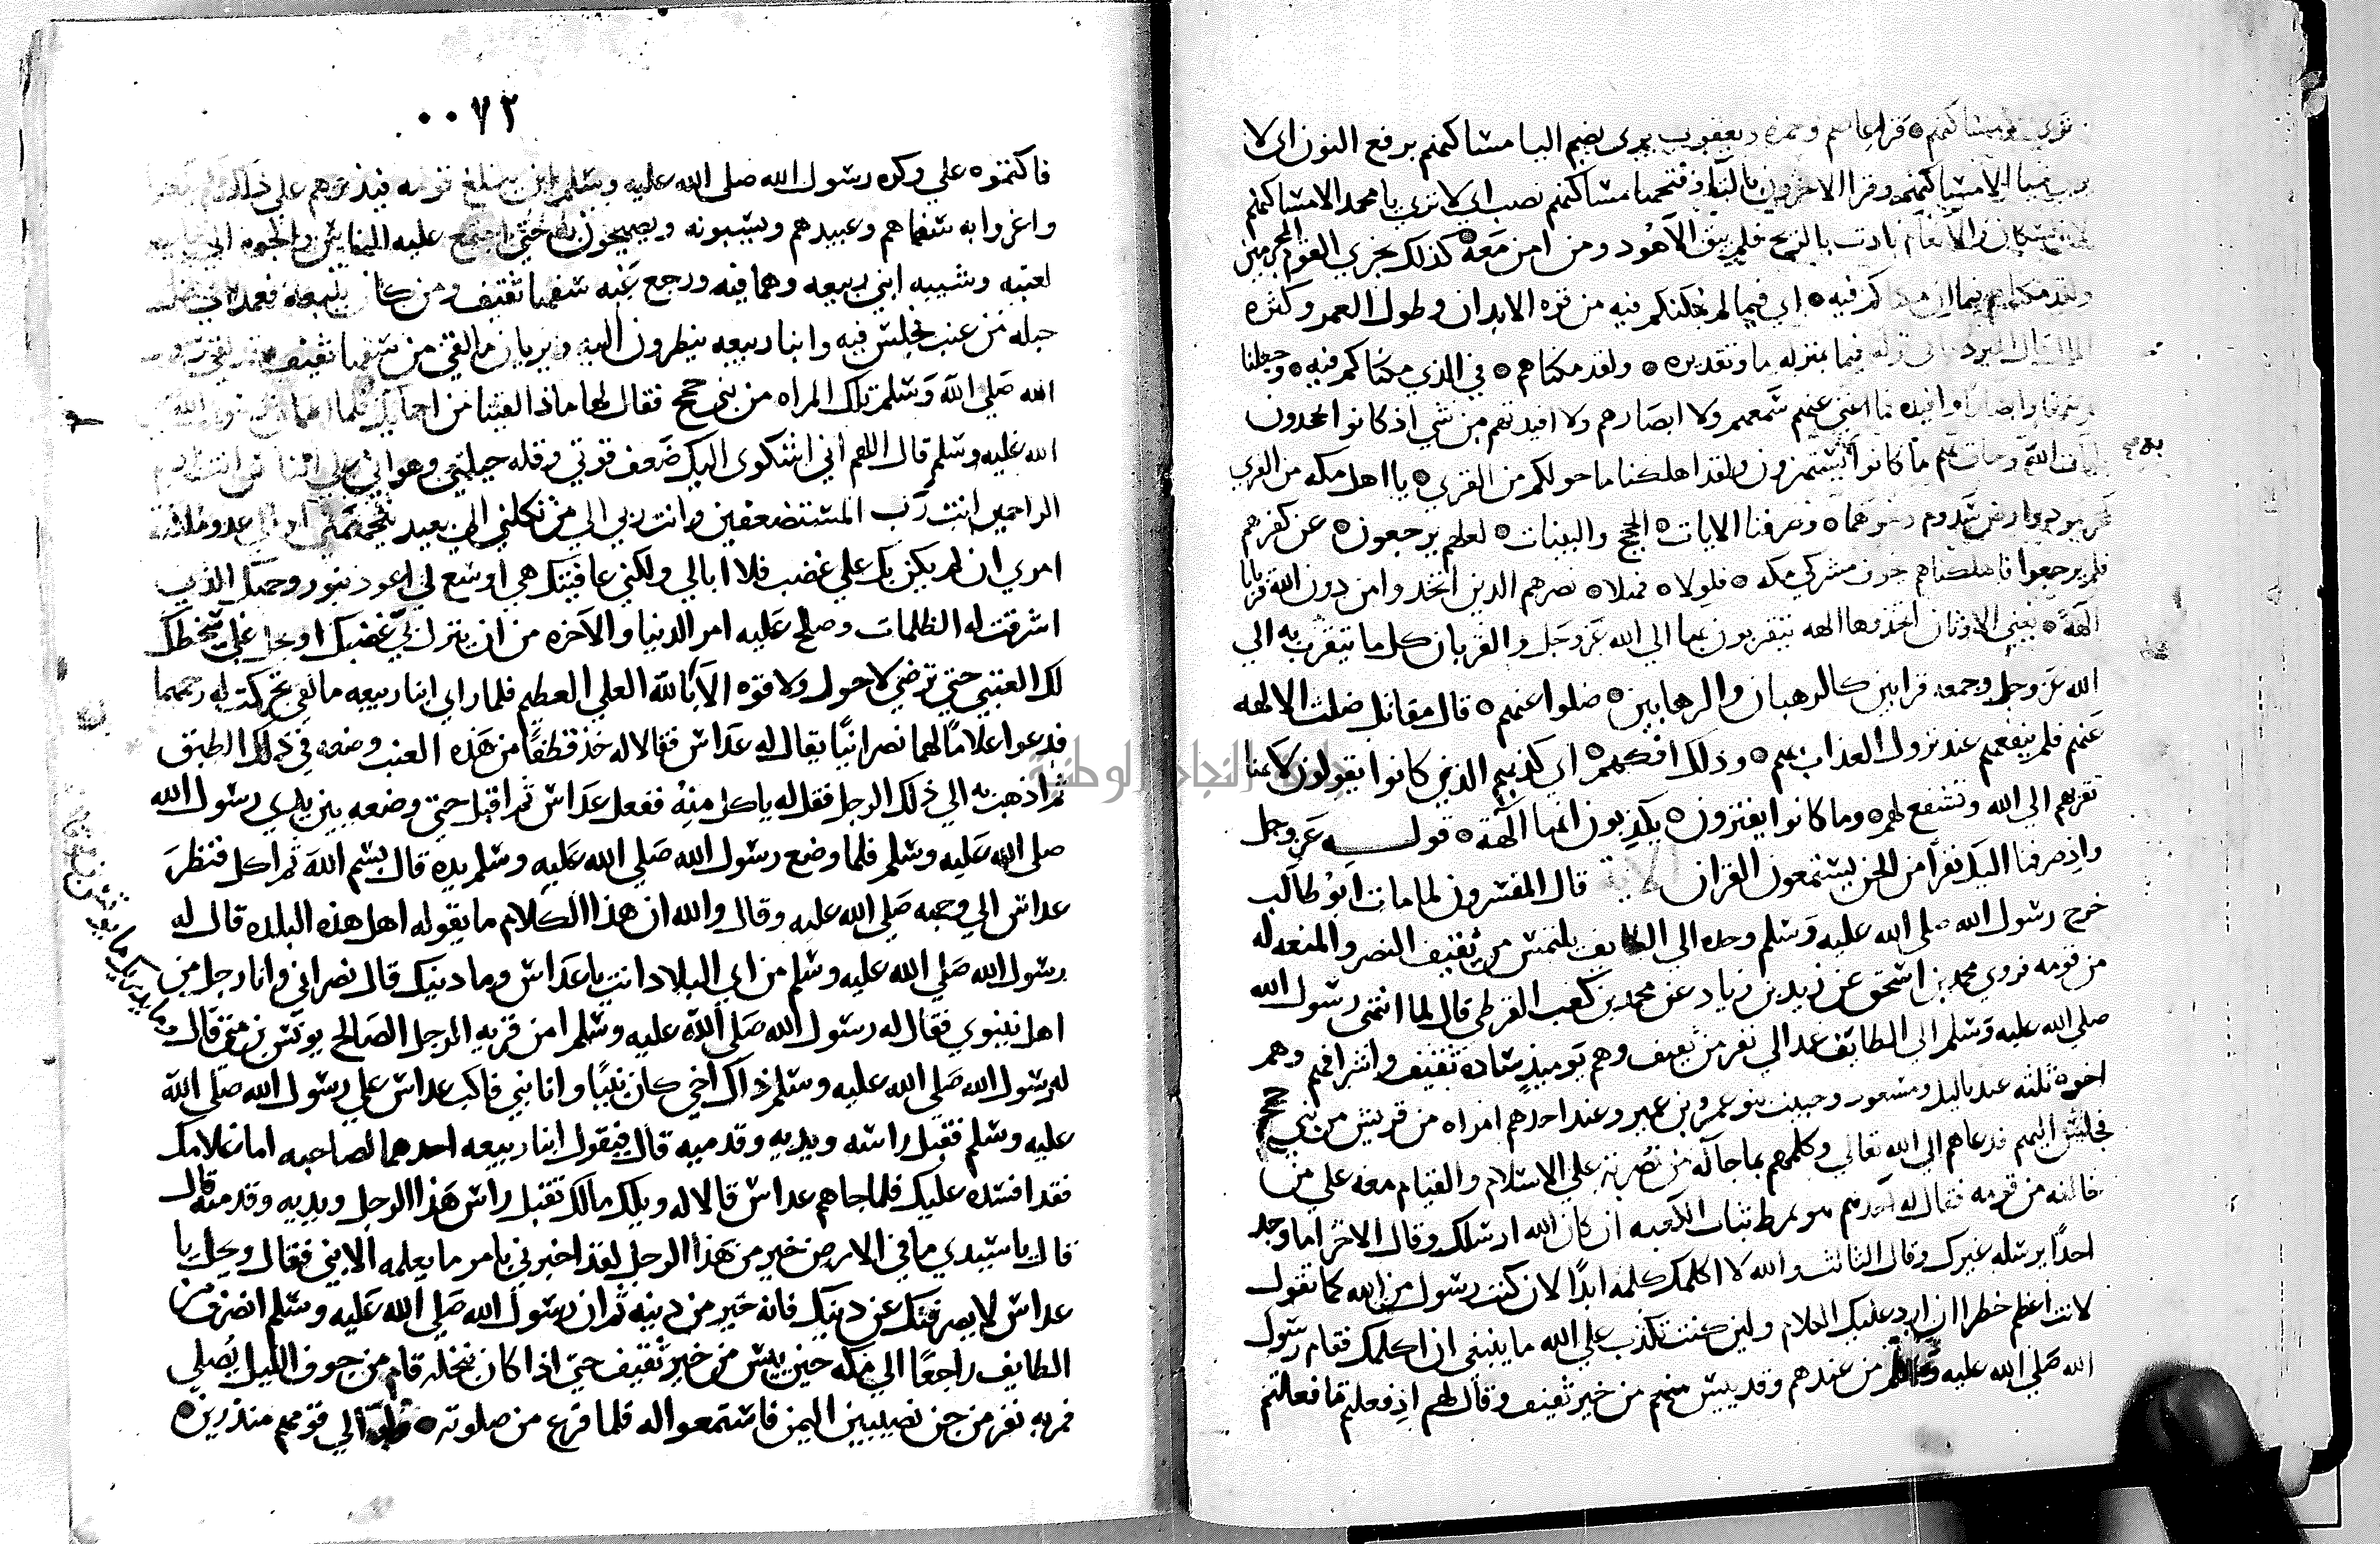 قرا عاصم وحمزه ويعقوب يرى بضم اليا مساكنهم برفع النون اى لا
الا مساكنهم وقرا الاخرون بالتا وفتحها مساكنهم نصب اى لا ترى يا محمد الا مساكنهم
بادت بالريح فلم يبق الا هود ومن امن معه كذلك نجزي القوم المجرمين
ولقد مكناهم فيما ان مكناكم فيه اي فيما لم نمكنكم فيه من قوه الابدان وطول العمر وكثره
المال قال المبرد ما فى قوله فيما بمنزله ما وتقديره ولقد مكناهم في الذي مكناكم فيه وجعلنا
وابصارا وافيده فما اغنى عنهم سمعهم ولا ابصارهم ولا افيدتهم من شي اذ كانوا يجحدون
بايات الله وحاق بهم ما كانوا به يستهزون ولقد اهلكنا ما حولكم من القرى يا اهل مكه من القري
وصرفنا الايات الحجج والبينات لعلهم يرجعون عن كفرهم
فلم يرجعوا فاهلكناهم خوف مشركي مكه فلولا فهلا نصرهم الذين اتخذوا من دون الله قربانا
الهة يعني الاوثان اتخذوها الهه يتقربون بها الي الله عز وجل والقربان كل ما يتقرب به الي
الله عز وجل وجمعه قرابين كالرهبان والرهابين ضلوا عنهم قال مقاتل ضلت الالهه
عنهم فلم ينفعهم عند نزول العذاب بهم وذلك افكهم اي كذبهم الذين كانوا يقولون لانها
تقربهم الي الله وتشفع لهم وما كانوا يفترون يكذبون انها الهة قوله عز وجل
واذ صرفنا اليك نفرا من الجن يستمعون القران الاية قال المفسرون لما مات ابو طالب
خرج رسول الله صلى الله عليه وسلم وحده الي الطايف يلتمس من ثقيف النصر والمنعه له
من قومه فروي محمد بن اسحق عن زيد بن زياد عن محمد بن كعب القرظي قال لما انتهى رسول الله
صلي الله عليه وسلم الي الطايف عمد الي نفر من ثقيف وهم يوميذ سادة ثقيف واشرافهم وهم
اخوة ثلثه عبد ياليل ومسعود وحبيب بنو عمرو بن عمير وعند احدهم امراه من قريش من بني جمح
فجلس اليهم فدعاهم الى الله تعالي وكلمهم بما جا له من نصرته علي الاسلام والقيام معه علي من
خالفه من قومه فقال له احدهم هو يمرط ثياب الكعبه ان كان الله ارسلك وقال الاخر اما وجد
احدًا يرسله غيرك وقال الثالث والله لا اكلمك كلمه ابدًا لان كنت رسول من الله كما تقول
لانت اعظم خطرا ان ارد عليك الكلام ولين كنت تكذب علي الله ما ينبغي ان اكلمك فقام رسول
الله صلي الله عليه وسلم من عندهم وقد ييس منهم من خير ثقيف وقال لهم اذ فعلتم ما فعلتم
٠٠٧٢
فاكتموه علي وكره رسول الله صلى الله عليه وسلم ان يبلغ قومه فيذيرهم على ذلك
واغروا به سفهاهم وعبيدهم ويسبونه ويصيحون به حتى اجتمع عليه الناس والجوه الى
لعتبه وشيبه ابني ربيعه وهما فيه ورجع عنه سفها ثقيف ومن كان يتبعه فعمد الى
حبله من عنب فجلس فيه وابنا ربيعه ينظرون اليه ويريان ما لقي من سفها ثقيف
الله صلي الله وسلم تلك المراه من بني جمح فقال لها ماذا لقينا من احمايك فلما
الله عليه وسلم قال اللهم اني اشكوى اليك ضعف قوتي وقله حيلتي وهواني علي الناس
الراحمين انت رب المستضعفين وانت ربي الي من تكلني الي بعيد يتجهمني او الي عدو ملكته
امري ان لم يكن بك علي غضب فلا ابالي ولكني عافيتك هي اوسع لي اعوذ بنور وجهك الذي
اشرقت له الظلمات وصلح عليه امر الدنيا والاخره من ان ينزل بي غضبك او يحل علي سخطك
لك العتبي حتي ترضي لا حول ولا قوه الا بالله العلي العظيم فلما راي ابنا ربيعه ما لقي تحركت له رحمهما
فدعوا غلاما لهما نصرانيًا يقال له عداس فقالا له خذ قطفًا من هذه العنب وضعه في ذلك الطبق
ثم اذهب به الي ذلك الرجل فقل له ياكل منه ففعل عداس ثم اقبل حتى وضعه بين يدي رسول الله
صلي الله عليه وسلم فلما وضع رسول الله صلي الله عليه وسلم يده قال بسم الله ثم اكل فنظر
عداس الي وجهه صلي الله عليه وقال والله ان هذا الكلام ما يقوله اهل هذه البلده قال له
رسول الله صلي الله عليه وسلم من اي البلاد انت يا عداس وما دينك قال نصراني وانا رجل من
اهل نينوي فقال له رسول الله صلي الله عليه وسلم امن قريه الرجل الصالح يونس بن متى قال وما يدريك ما يونس بن متى
له رسول الله صلي الله عليه وسلم ذاك اخي كان نبيًا وانا نبي فاكب عداس علي رسول الله صلي الله
عليه وسلم فقبل راسه ويديه وقدميه قال فيقول ابنا ربيعه احدهما لصاحبه اما غلامك
فقد افسده عليك فلما جاهم عداس قالا له ويلك مالك تقبل راس هذا الرجل ويديه وقدميه قال
قال يا سيدي ما في الارض خير من هذا الرجل لقد اخبرني بامر ما يعلمه الا نبي فقال ويحك يا
عداس لا يصرفنك عن دينك فانه خير من دينه ثم ان رسول الله صلي الله عليه وسلم انصرف من
الطايف راجعًا الي مكه حين ييس من خير ثقيف حتي اذا كان بنخله قام من جوف الليل يُصلي
فمر به نفر من جن نصيبين اليمن فاستمعوا له فلما فرغ من صلوته ولوا الي قومهم منذرين